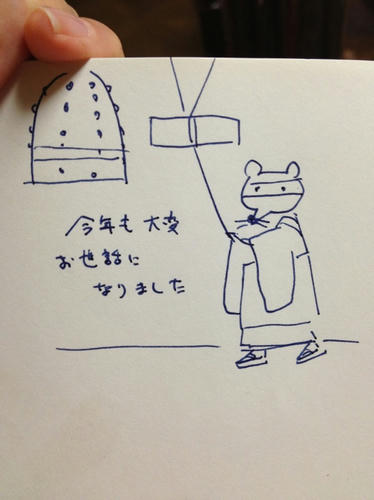 今年も大変
お世話に
なりました